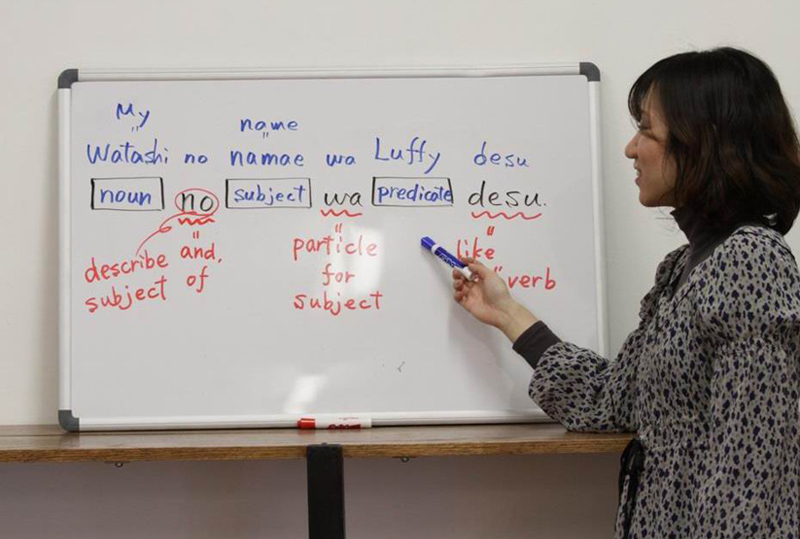 My
name
Watashi no namae wa Luffy desu
noun no subject wa predicate desu.
describe and,
subject of
particle
for
subject
like
" verb